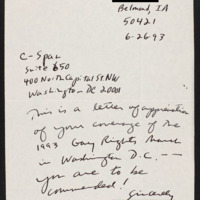 Belmond, IA
50421
6-26-93
C-Span
Suite 650
400 North Capital St NW
Washington DC 20001
This is a letter of appreciation
of your coverage of the
1993 Gay Rights March
in Washington D.C. --
you are to be
commended!
Sincerely